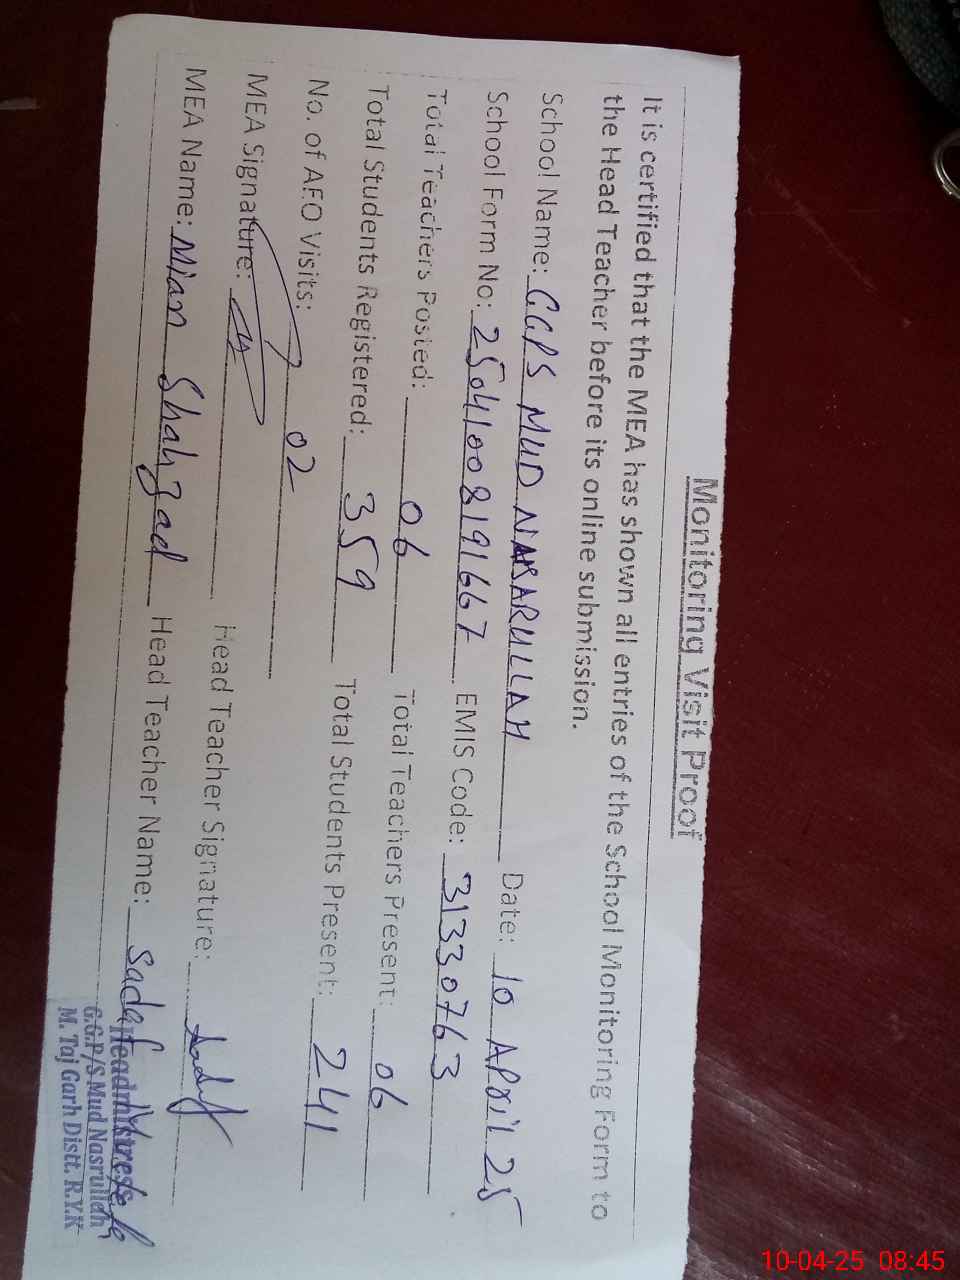 Monitoring Visit Proof
It is certified that the MEA has shown all entries of the School Monitoring Form to
the Head Teacher before its online submission.
School Name: GGPS MUD NASARULLAH Date: 10 APRil 25
School Form No: 25041008191667 EMIS Code: 31330763
Total Teachers Posted: 06 Total Teachers Present: 06
Total Students Registered: 359 Total Students Present: 241
No. of AEO Visits: 02
MEA Signature: Head Teacher Signature:
MEA Name: Mian Shahzad Head Teacher Name: Sadaf
Headmistress
G.G.P/S Mud Nasrullah
M. Taj Garh Distt. R.Y.K
10-04-25 08:45